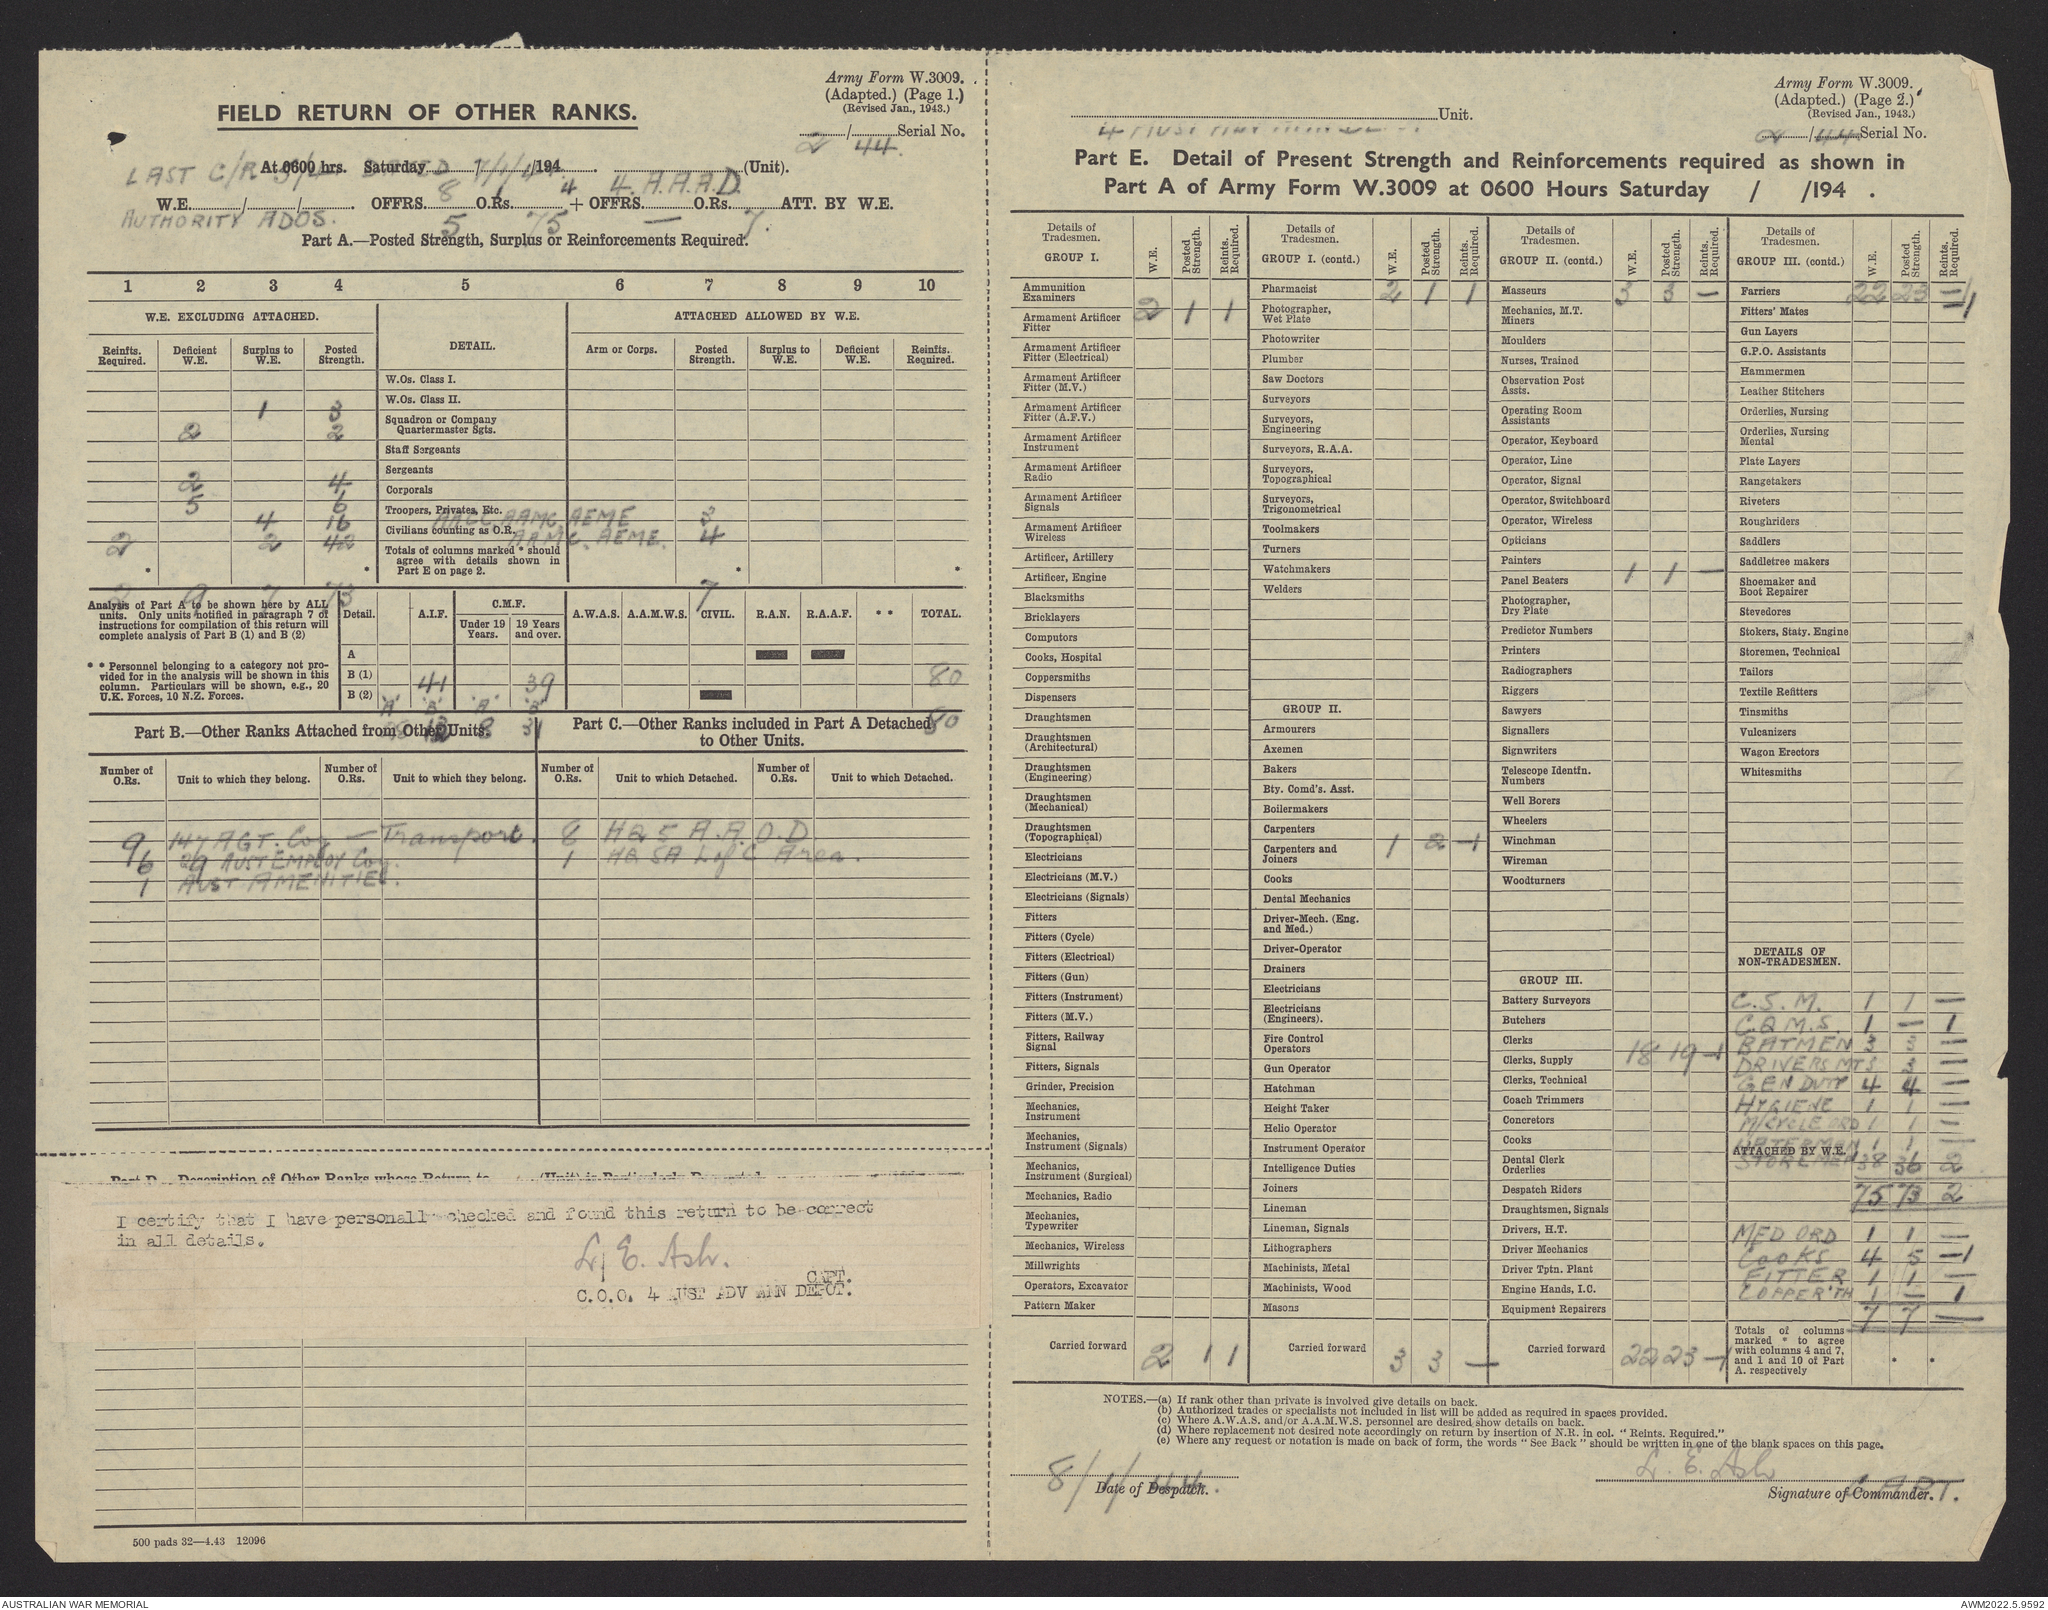 Army Form W.3009.
(Adapted.) (Page 1.)
(Revised Jan., 1943.)
FIELD RETURN OF OTHER RANKS.
2 / 44. Serial No.
At 0600 hrs. Saturday 8 / 1 /194 4 4. A.A.A.D. (Unit).
LAST C/R
W.E. / / OFFRS. 5 O.Rs. 75 + OFFRS. — O.Rs. 7. ATT. BY W.E.
AUTHORITY ADOS.
Part A.—Posted Strength, Surplus or Reinforcements Required.
1 2 3 4 5 6 7 8 9 10
W.E. EXCLUDING ATTACHED. DETAIL. ATTACHED ALLOWED BY W.E.
Reinfts. Required. Deficient W.E. Surplus to W.E. Posted Strength. Arm or Corps. Posted Strength. Surplus to W.E. Deficient W.E. Reinfts. Required.
W.Os. Class I.
W.Os. Class II.
1 3
Squadron or Company Quartermaster Sgts.
2 2
Staff Sergeants
Sergeants
2 4
Corporals
5 6
Troopers, Privates, Etc.
4 16 AACC AAMC AEME 3
Civilians counting as O.R.
2 2 42 AAMC. AEME. 4
Totals of columns marked * should agree with details shown in Part E on page 2.
* * * *
2 9 7 73 7
Analysis of Part A to be shown here by ALL units. Only units notified in paragraph 7 of instructions for compilation of this return will complete analysis of Part B (1) and B (2)
* * Personnel belonging to a category not provided for in the analysis will be shown in this column. Particulars will be shown, e.g., 20 U.K. Forces, 10 N.Z. Forces.
Detail. A.I.F. C.M.F. Under 19 Years. 19 Years and over. A.W.A.S. A.A.M.W.S. CIVIL. R.A.N. R.A.A.F. * * TOTAL.
A
B (1)
41 39 80
B (2)
"A" "B" "A" "B"
8 31 80
Part B.—Other Ranks Attached from Other Units.
Part C.—Other Ranks included in Part A Detached to Other Units.
Number of O.Rs. Unit to which they belong. Number of O.Rs. Unit to which they belong. Number of O.Rs. Unit to which Detached. Number of O.Rs. Unit to which Detached.
9 147 AGT. Coy — Transport. 8 HQ 5 A.A.O.D.
6 29 AUST EMPLOY Coy. 1 HQ SA L of C Area.
1 AUST AMENITIES.
Part D.—Description of Other Ranks whose Return to (Unit) is Particularly Requested.
I certify that I have personally checked and found this return to be correct
in all details.
L. E. Ash.
CAPT.
C.O.O. 4 AUST ADV AMN DEPOT.
500 pads 32—4.43 12096
Army Form W.3009.
(Adapted.) (Page 2.)
(Revised Jan., 1943.)
Unit.
2 / 44 Serial No.
Part E. Detail of Present Strength and Reinforcements required as shown in
Part A of Army Form W.3009 at 0600 Hours Saturday / /194 .
Details of Tradesmen. GROUP I. W.E. Posted Strength. Reints. Required.
Ammunition Examiners
2 1 1
Armament Artificer Fitter
Armament Artificer Fitter (Electrical)
Armament Artificer Fitter (M.V.)
Armament Artificer Fitter (A.F.V.)
Armament Artificer Instrument
Armament Artificer Radio
Armament Artificer Signals
Armament Artificer Wireless
Artificer, Artillery
Artificer, Engine
Blacksmiths
Bricklayers
Computors
Cooks, Hospital
Coppersmiths
Dispensers
Draughtsmen
Draughtsmen (Architectural)
Draughtsmen (Engineering)
Draughtsmen (Mechanical)
Draughtsmen (Topographical)
Electricians
Electricians (M.V.)
Electricians (Signals)
Fitters
Fitters (Cycle)
Fitters (Electrical)
Fitters (Gun)
Fitters (Instrument)
Fitters (M.V.)
Fitters, Railway Signal
Fitters, Signals
Grinder, Precision
Mechanics, Instrument
Mechanics, Instrument (Signals)
Mechanics, Instrument (Surgical)
Mechanics, Radio
Mechanics, Typewriter
Mechanics, Wireless
Millwrights
Operators, Excavator
Pattern Maker
Carried forward 2 1 1
Details of Tradesmen. GROUP I. (contd.) W.E. Posted Strength. Reints. Required.
Pharmacist 2 1 1
Photographer, Wet Plate
Photowriter
Plumber
Saw Doctors
Surveyors
Surveyors, Engineering
Surveyors, R.A.A.
Surveyors, Topographical
Surveyors, Trigonometrical
Toolmakers
Turners
Watchmakers
Welders
GROUP II.
Armourers
Axemen
Bakers
Bty. Comd's. Asst.
Boilermakers
Carpenters
Carpenters and Joiners 1 2 -1
Cooks
Dental Mechanics
Driver-Mech. (Eng. and Med.)
Driver-Operator
Drainers
Electricians
Electricians (Engineers).
Fire Control Operators
Gun Operator
Hatchman
Height Taker
Helio Operator
Instrument Operator
Intelligence Duties
Joiners
Lineman
Lineman, Signals
Lithographers
Machinists, Metal
Machinists, Wood
Masons
Carried forward 3 3 —
Details of Tradesmen. GROUP II. (contd.) W.E. Posted Strength. Reints. Required.
Masseurs 3 3 —
Mechanics, M.T.
Miners
Moulders
Nurses, Trained
Observation Post Assts.
Operating Room Assistants
Operator, Keyboard
Operator, Line
Operator, Signal
Operator, Switchboard
Operator, Wireless
Opticians
Painters
Panel Beaters 1 1 —
Photographer, Dry Plate
Predictor Numbers
Printers
Radiographers
Riggers
Sawyers
Signallers
Signwriters
Telescope Identfn. Numbers
Well Borers
Wheelers
Winchman
Wireman
Woodturners
GROUP III.
Battery Surveyors
Butchers
Clerks
Clerks, Supply 18 19 -1
Clerks, Technical
Coach Trimmers
Concretors
Cooks
Dental Clerk Orderlies
Despatch Riders
Draughtsmen, Signals
Drivers, H.T.
Driver Mechanics
Driver Tptn. Plant
Engine Hands, I.C.
Equipment Repairers
Carried forward 22 23 -1
Details of Tradesmen. GROUP III. (contd.) W.E. Posted Strength. Reints. Required.
Farriers 22 23 -1
Fitters' Mates
Gun Layers
G.P.O. Assistants
Hammermen
Leather Stitchers
Orderlies, Nursing
Orderlies, Nursing Mental
Plate Layers
Rangetakers
Riveters
Roughriders
Saddlers
Saddletree makers
Shoemaker and Boot Repairer
Stevedores
Stokers, Staty. Engine
Storemen, Technical
Tailors
Textile Refitters
Tinsmiths
Vulcanizers
Wagon Erectors
Whitesmiths
DETAILS OF NON-TRADESMEN.
C.S.M. 1 1 —
C.Q.M.S. 1 — 1
BATMEN 3 3 —
DRIVERS MT 3 3 —
GEN DUTY 4 4 —
HYGIENE 1 1 —
M/CYCLE ORD 1 1 —
WATERMAN 1 1 —
ATTACHED BY W.E.
STOREMEN 38 36 2
75 73 2
MED ORD 1 1 —
COOKS 4 5 -1
FITTER 1 1 —
COPPER'TH 1 — 1
7 7 —
Totals of columns marked * to agree with columns 4 and 7, and 1 and 10 of Part A. respectively
NOTES.—(a) If rank other than private is involved give details on back.
(b) Authorized trades or specialists not included in list will be added as required in spaces provided.
(c) Where A.W.A.S. and/or A.A.M.W.S. personnel are desired show details on back.
(d) Where replacement not desired note accordingly on return by insertion of N.R. in col. "Reints. Required."
(e) Where any request or notation is made on back of form, the words "See Back" should be written in one of the blank spaces on this page.
8/1/44. L. E. Ash CAPT.
Date of Despatch. Signature of Commander.
AUSTRALIAN WAR MEMORIAL AWM2022.5.9592